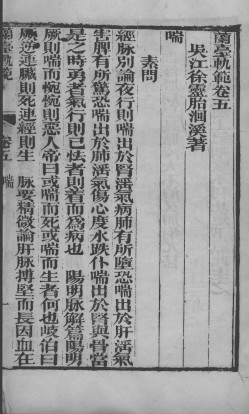 蘭臺軌範卷五
吳江徐靈胎洄溪著
喘
素問
經脉別論夜行則喘出於腎淫氣病肺有所墮恐喘出於肝淫氣
害脾有所驚恐喘出於肺淫氣傷心度水跌仆喘出於腎與骨當
是之時勇者氣行則已怯者則着而為病也　陽明脉解篇陽明
厥則喘而惋惋則惡人帝曰或喘而死或喘而生者何也岐伯曰
厥逆連臟則死連經則生　脉要精微論肝脉搏堅而長因血在
蘭臺軌範　卷五　喘